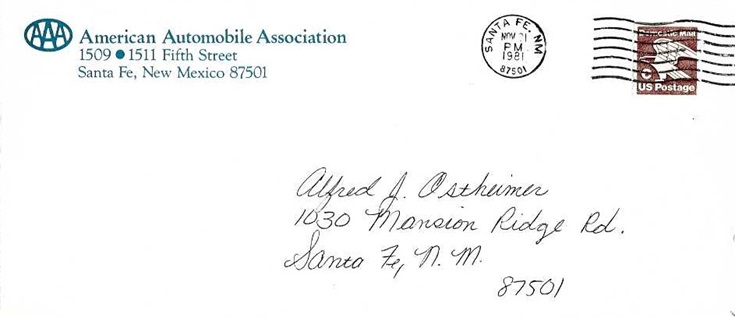 AAA American Automobile Association
1509 ● 1511 Fifth Street
Santa Fe, New Mexico 87501
SANTA FE, NM
NOV 21
PM
1981
87501
Domestic Mail
C
US Postage
Alfred J. Ostheimer
1030 Mansion Ridge Rd.
Santa Fe, N. M.
87501